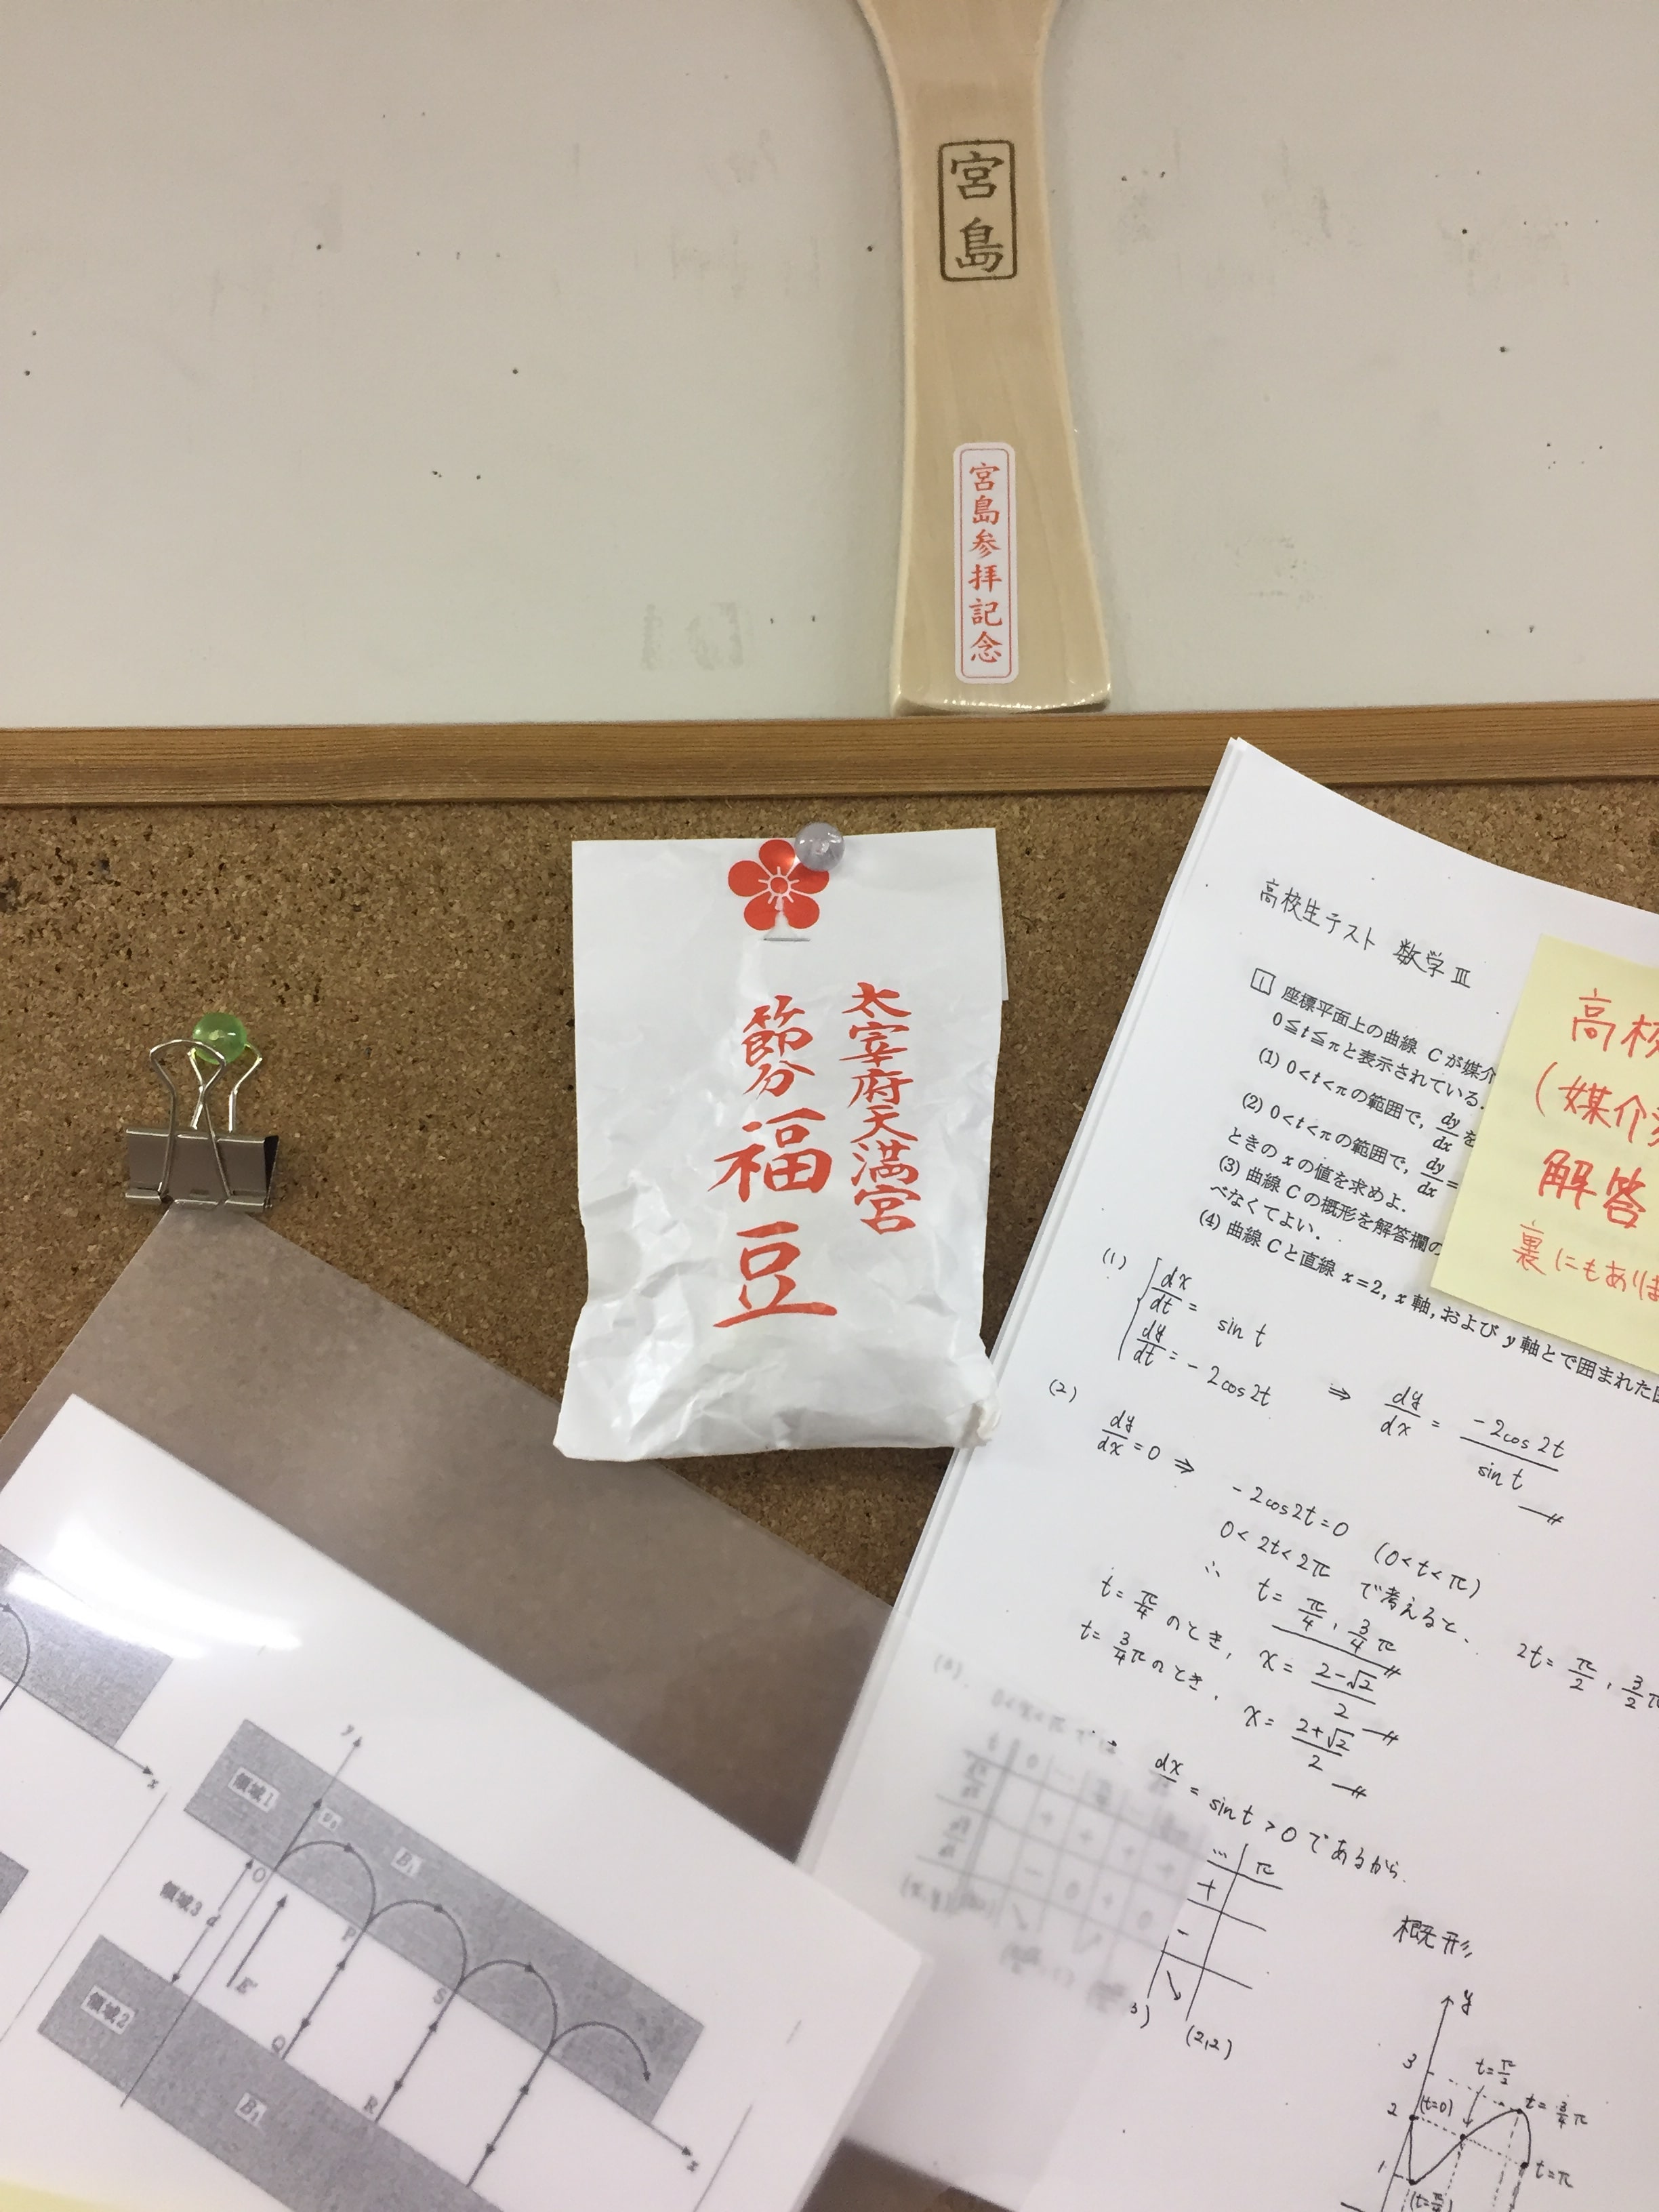 宮島
宮島参拝記念
太宰府天満宮
節分福豆
高校生テスト 数学Ⅲ
1 座標平面上の曲線 C が媒介
0≦t≦πと表示されている.
(1) 0<t<πの範囲で, dy/dx を
(2) 0<t<πの範囲で, dy/dx =
ときの x の値を求めよ.
(3) 曲線 C の概形を解答欄の
べなくてよい.
(4) 曲線 C と直線 x=2, x 軸, および y 軸とで囲まれた
高校
(媒介
解答
裏にもありま
(1) dx/dt = sin t
dy/dt = -2cos2t ⇒ dy/dx = -2cos2t / sin t
(2) dy/dx = 0 ⇒ -2cos2t=0 (0<t<π)
0<2t<2π で考えると、 2t= π/2 , 3/2 π
∴ t= π/4 , 3/4 π
t= π/4 のとき, x= 2-√2 / 2
t= 3/4 π のとき, x= 2+√2 / 2
dx = sin t > 0 であるから.
… π
+
-
↘
(2,2)
概形
y
3
2
1
(t=0)
t= π/2
t= 3/4 π
t=π
x
y
領域1
v1
B1
O
領域3
d
E
P
S
領域2
Q
R
B1
x